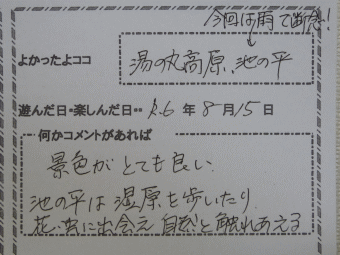 今回は雨で断念!
よかったよココ
湯の丸高原、池の平
遊んだ日・楽しんだ日・・ R.6 年 8 月 15 日
何かコメントがあれば
景色がとても良い
池の平は湿原を歩いたり
花・虫に出会え 自然と触れあえる